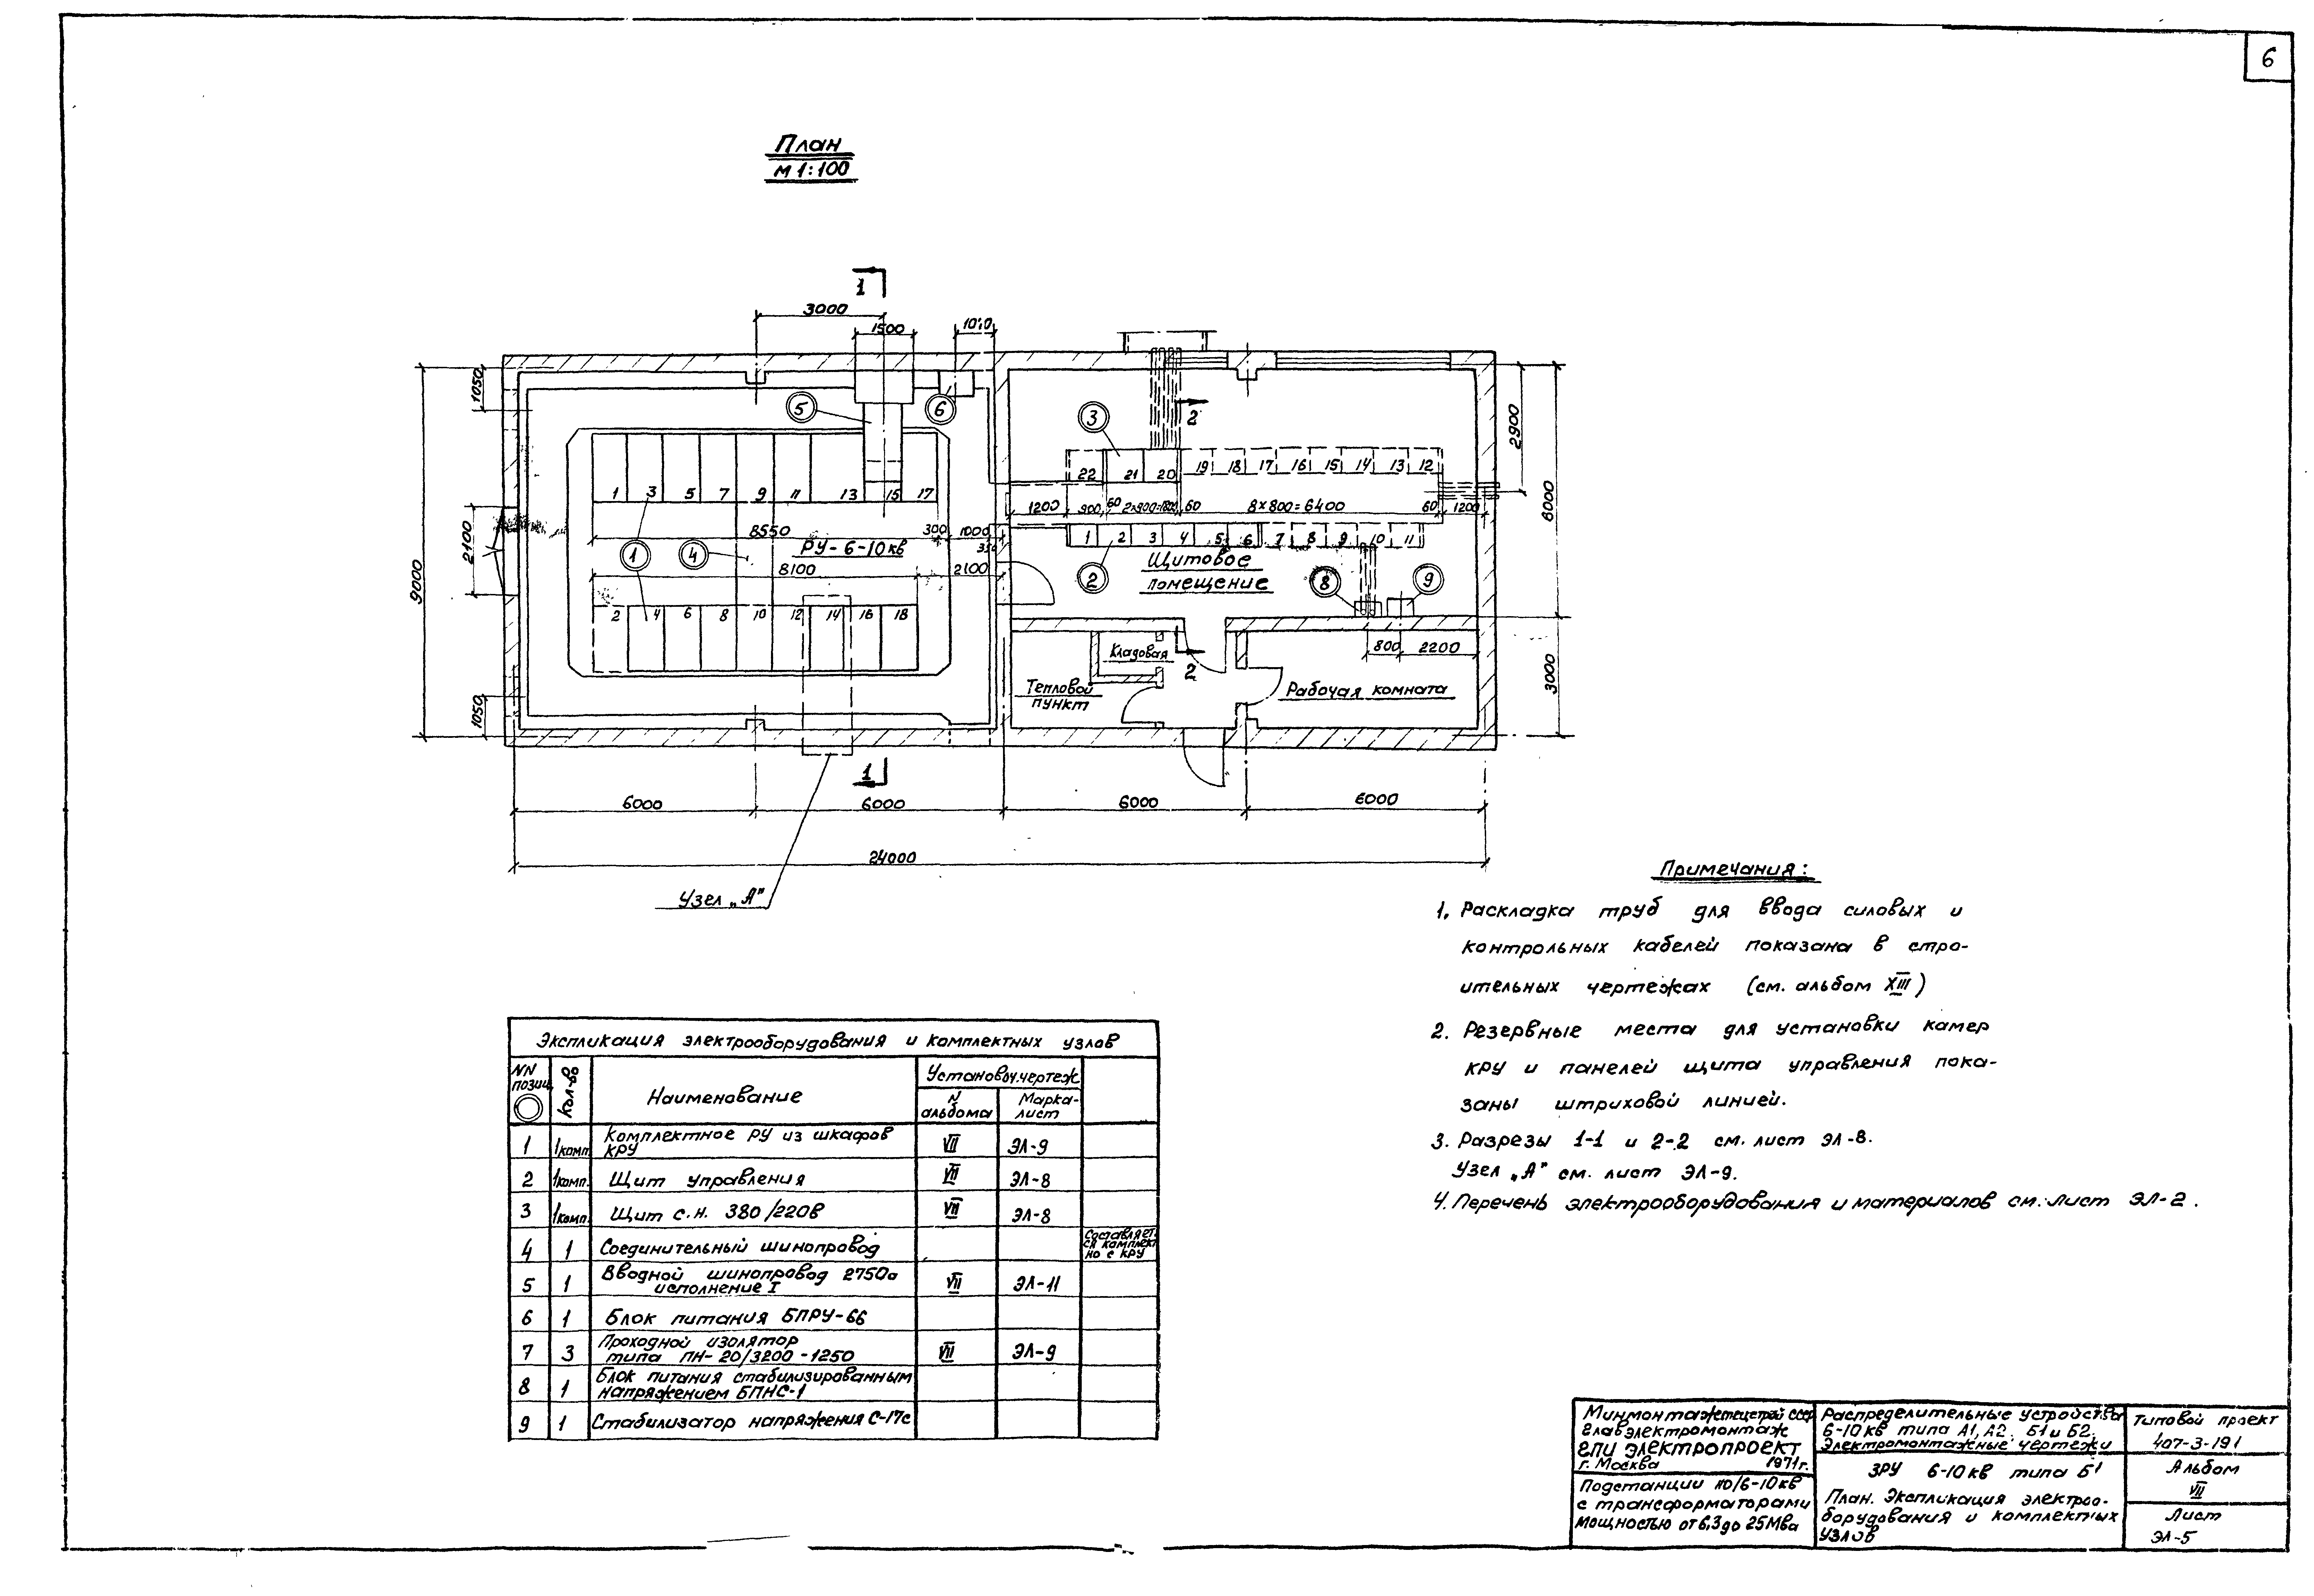 6
План
М 1:100
1
3000
1500
1050
2100
9000
1050
5
6
3
2
2900
6000
3000
1 3 5 7 9 11 13 15 17
22 21 20 19 18 17 16 15 14 13 12
1200 900 60 2×900=1800 60 8×800=6400 60 1200
8550 300 1000
1 4 РУ-6-10кв
8100 2100
1 2 3 4 5 6 7 8 9 10 11
Щитовое
помещение
2 8 9
2 4 6 8 10 12 14 16 18
800 2200
Кладовая
2
Тепловой
пункт
Рабочая комната
1
6000 6000 6000 6000
24000
Узел „А"
Примечания:
1. Раскладка труб для ввода силовых и
контрольных кабелей показана в стро-
ительных чертежах (см. альбом XIII)
2. Резервные места для установки камер
КРУ и панелей щита управления пока-
заны штриховой линией.
3. Разрезы 1-1 и 2-2 см. лист ЭЛ-8.
Узел „А" см. лист ЭЛ-9.
4. Перечень электрооборудования и материалов см. лист ЭЛ-2.
Экспликация электрооборудования и комплектных узлов
NN позиц. Кол-во Наименование Установоч. чертеж
N альбома Марка-лист
1 1комп. Комплектное РУ из шкафов КРУ VII ЭЛ-9
2 1комп. Щит управления VII ЭЛ-8
3 1комп. Щит с.н. 380/220в VII ЭЛ-8
4 1 Соединительный шинопровод
5 1 Вводной шинопровод 2750а исполнение I VII ЭЛ-11
6 1 Блок питания БПРУ-66
7 3 Проходной изолятор типа ПН-20/3200-1250 VII ЭЛ-9
8 1 Блок питания стабилизированным напряжением БПНС-1
9 1 Стабилизатор напряжения С-17с
Минмонтажспецстрой СССР
Главэлектромонтаж
ГПИ Электропроект
г. Москва 1971г.
Подстанции 110/6-10кв
с трансформаторами
мощностью от 6,3 до 25Мва
Распределительные устройства
6-10кв типа А1, А2, Б1 и Б2.
Электромонтажные чертежи
ЗРУ 6-10кв типа Б1
План. Экспликация электроо-
борудования и комплектных
узлов
Типовой проект
407-3-191
Альбом
VII
Лист
ЭЛ-5